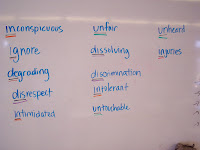 inconspicuous
ignore
degrading
disrespect
intimidated
unfair
dissolving
discrimination
intolerant
untouchable
unheard
injuries